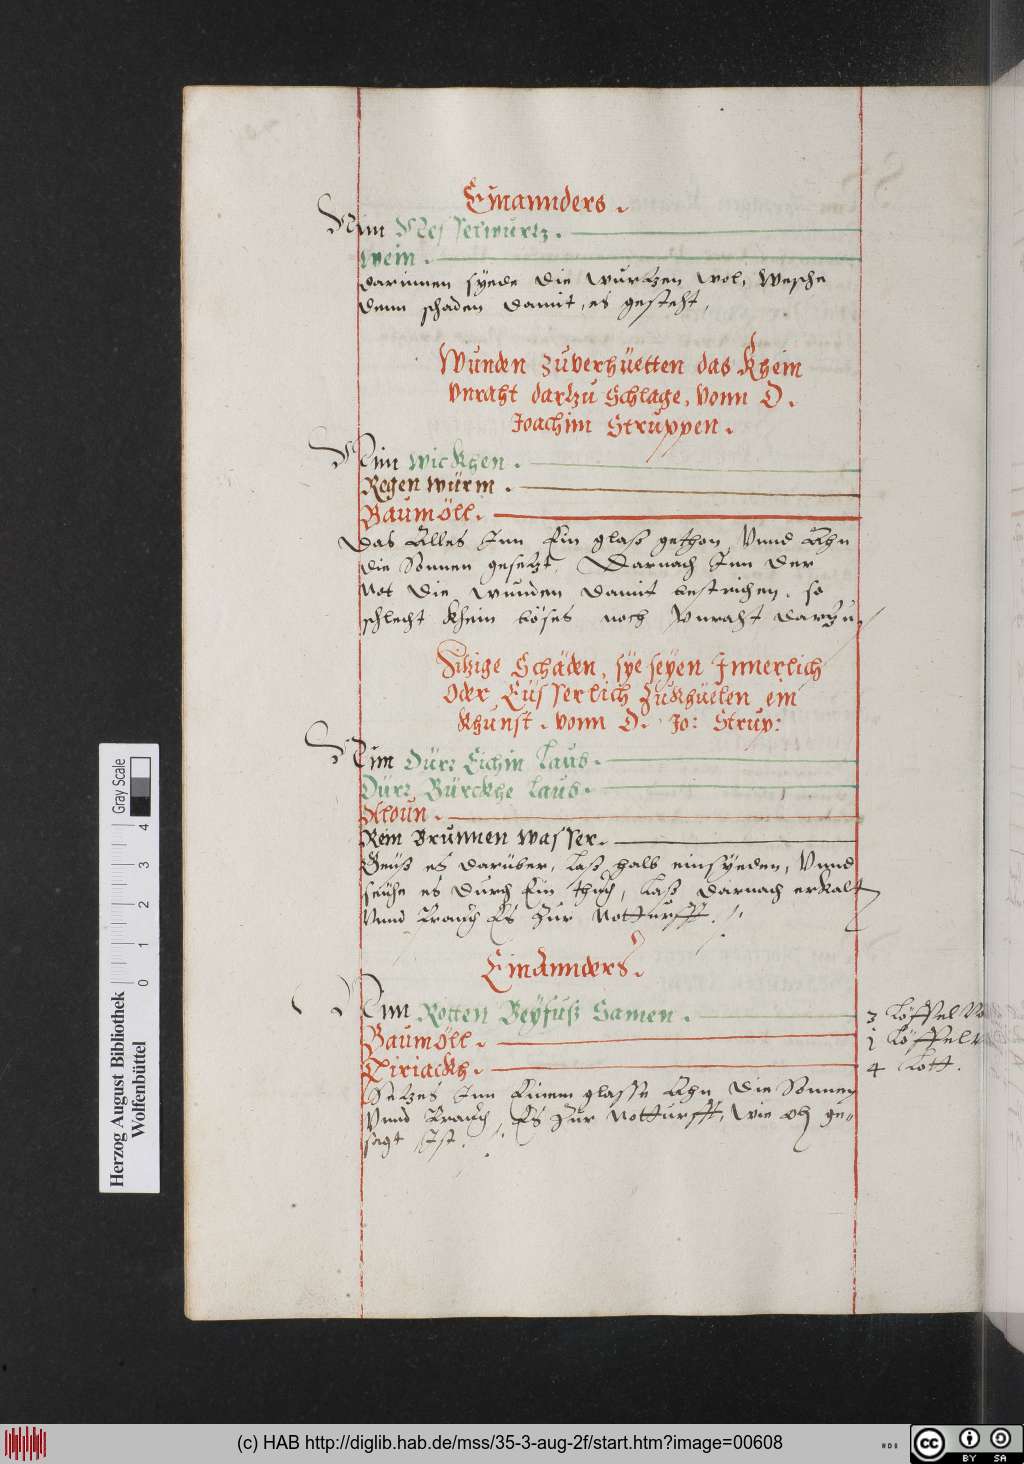 Einannders.
Nim Nesselwurtz.
Wein.
darinnen syede die wurtzen wol, wesche
denn schaden damit, es gesteht,
Wunden zuverhüetten das khein
vnraht dartzu schlage, vonn D.
Joachim Struppen.
Nim wickhen.
Regen würm.
Baumöll.
Das Alles Inn Ein glaß gethon, Vnnd Ahn
die Sonnen gesetzt, Darnach Inn der
Not die wunden damit bestrichen, so
schlecht khein böses noch Vnraht darzu,
Hitzige Schäden, sye seyen Innerlich
oder Eüsserlich Zukhüelen ein
khunst. vonn D. Jo: Strup:
Nim Dürr Eichin Laub.
Dürr Bürckhe Laub.
Aloun.
Rein Brunnen wasser.
Geüß es darüber, laß halb einsyeden, Vnnd
seühe es durch Ein thuch, laß darnach erkalt
Vnnd brauch Es Zur Notturfft.
Einannders.
Nim Rotten Beyfuß Samen. 3 Löffel
Baumöll. 1 Löffel
Tiriackh. 4 Lott.
Setzes Inn Einem glasse Ahn die Sonnen
Vnnd brauch Es Zur Notturfft, wie ob ge-
sagt Ist.
Gray Scale
0 1 2 3 4
Herzog August Bibliothek
Wolfenbüttel
(c) HAB http://diglib.hab.de/mss/35-3-aug-2f/start.htm?image=00608
cc BY SA